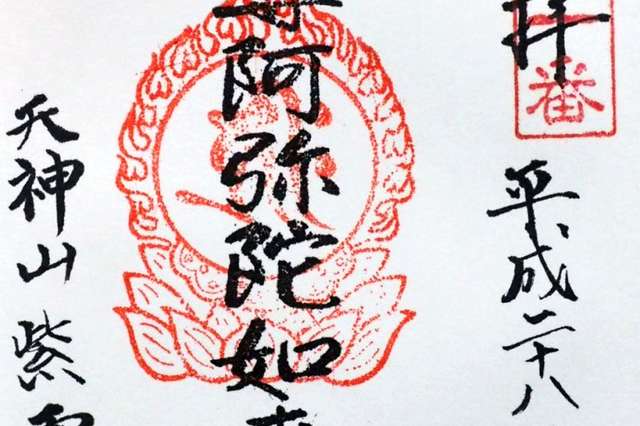 拝
番
平成二十八
阿弥陀如
天神山紫